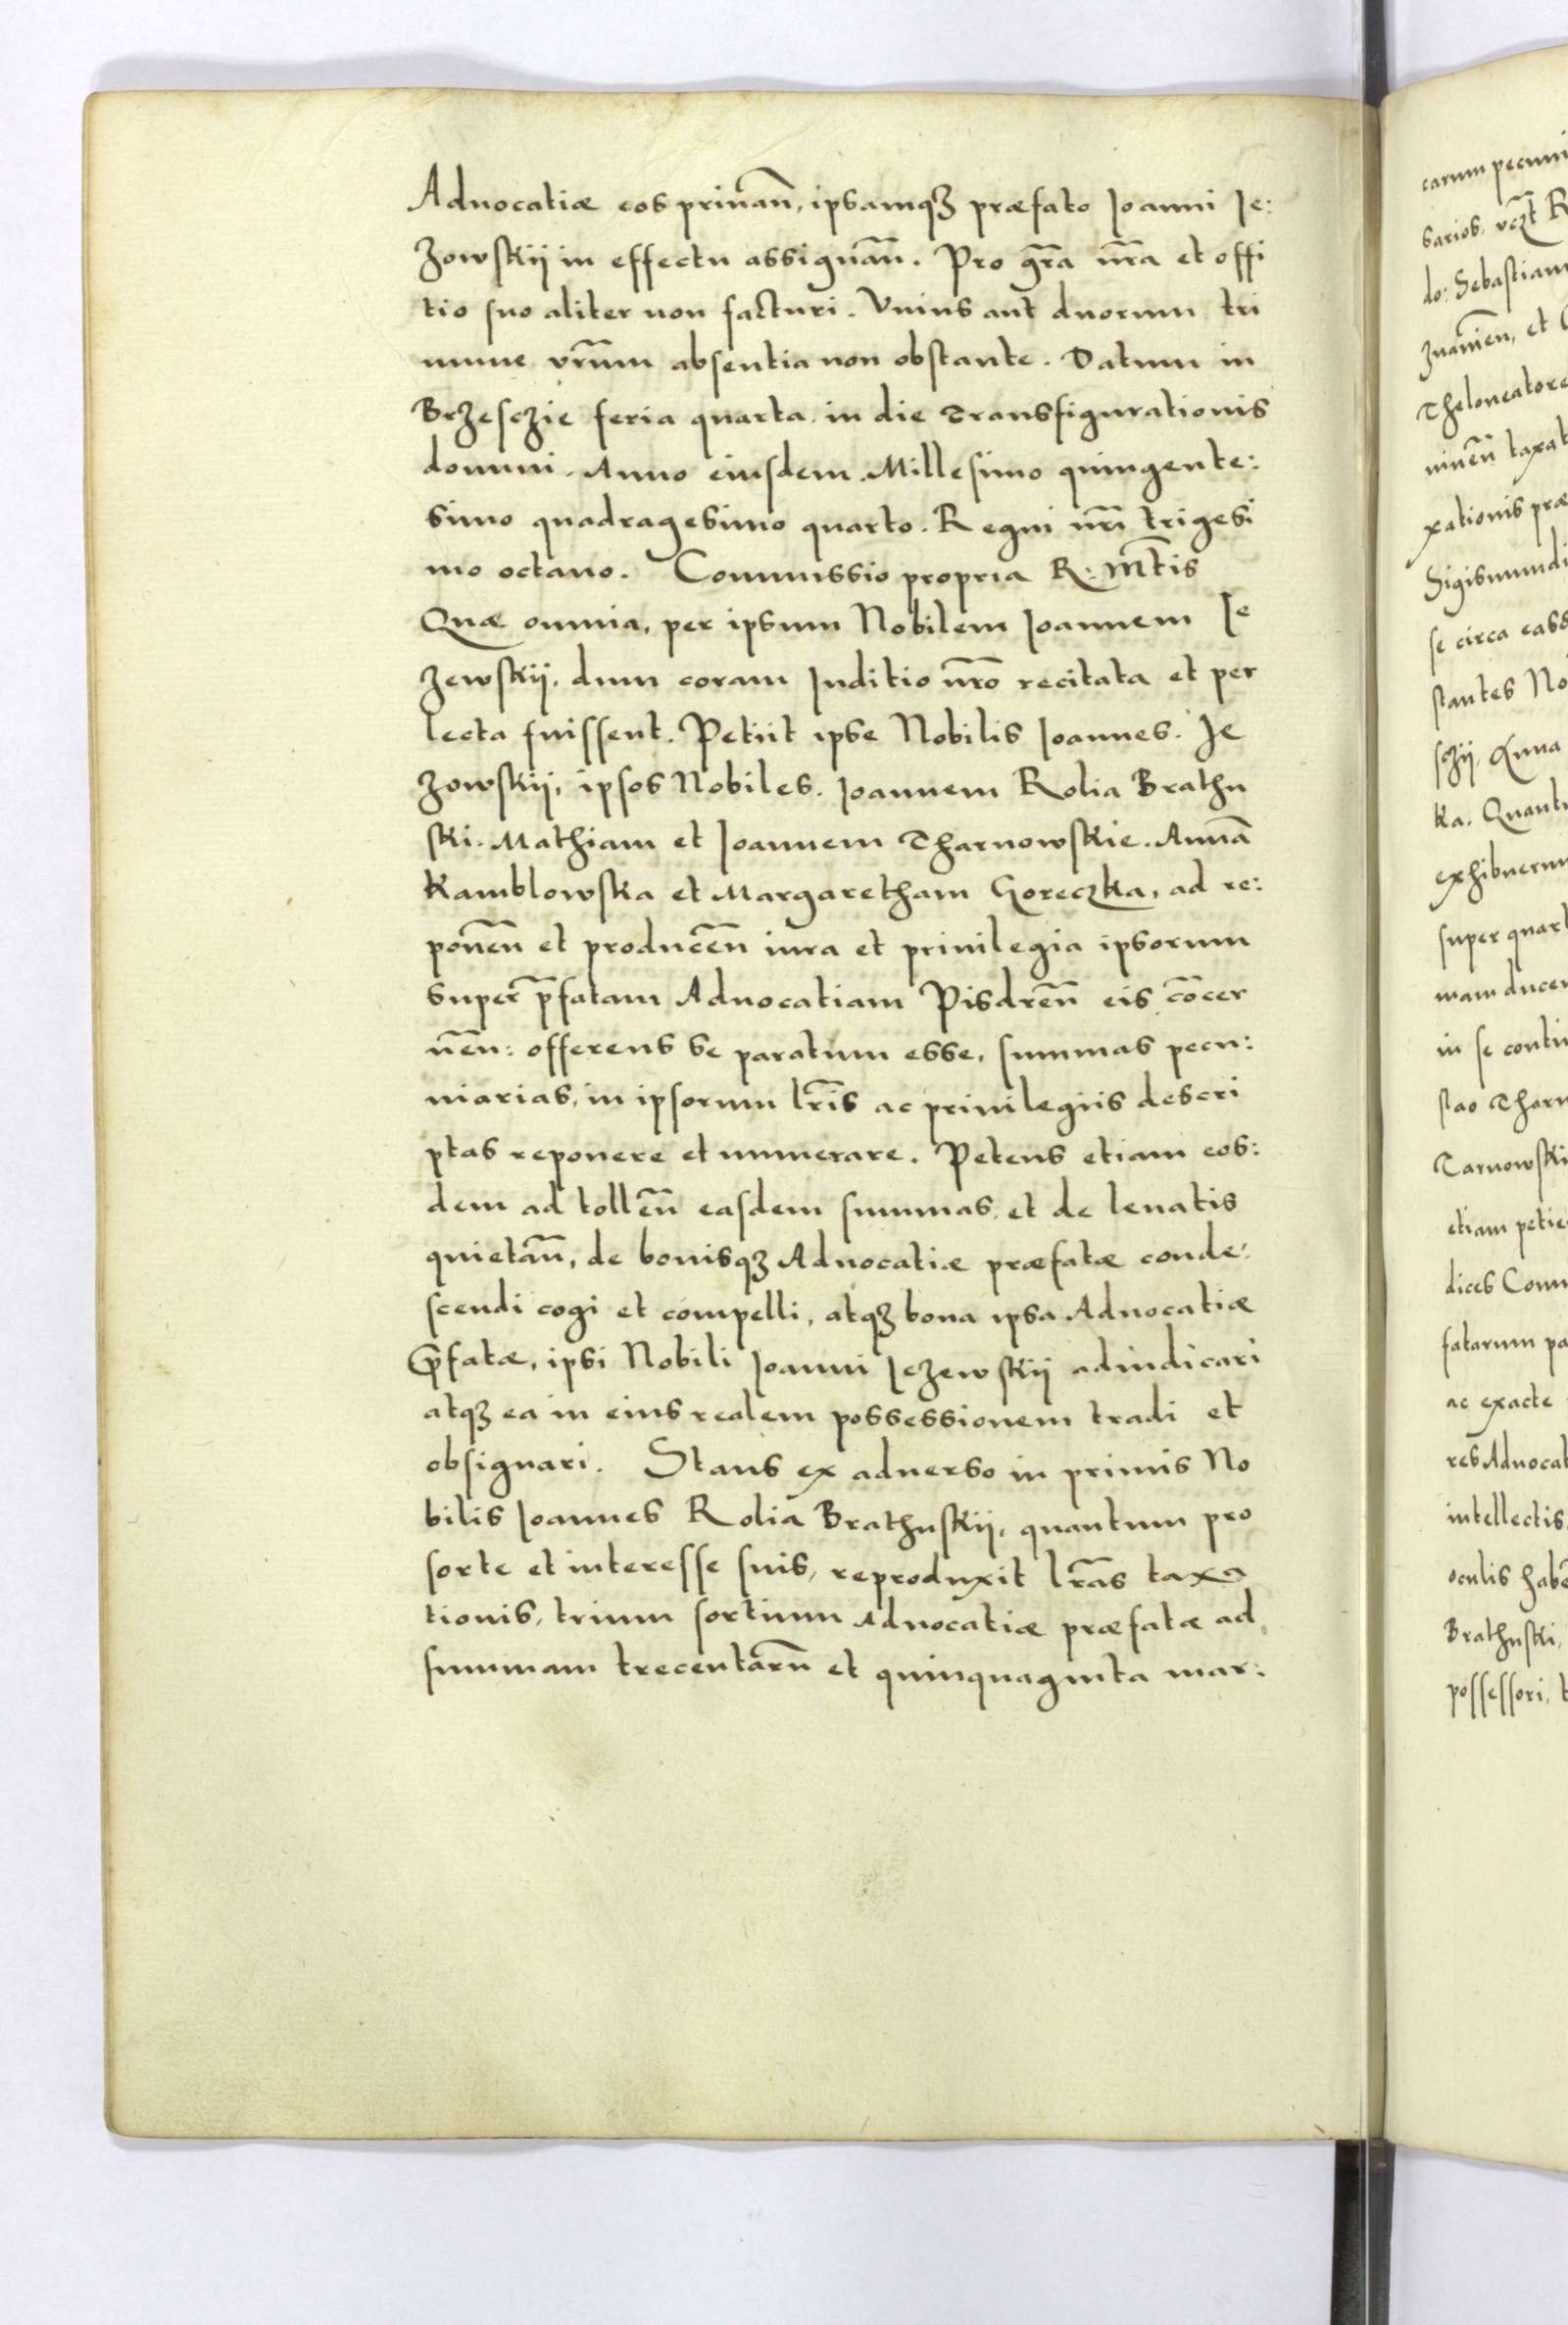 Aduocatiæ eos priuan̄, ipsamqȝ præfato Joanni Je:
zowskij in effectu assignan̄. Pro gr̄a nr̄a et offi
tio suo aliter non facturi. Vnius aut duorum tri
umue vr̄um absentia non obstante. Datum in
Brzesczie feria quarta in die Transfigurationis
domini. Anno eiusdem Millesimo quingente:
simo quadragesimo quarto. Regni nr̄i trigesi
mo octauo. Commissio propria R: Mt̄is
Quæ omnia, per ipsum Nobilem Joannem Je
zewskij, dum coram Juditio nr̄o recitata et per
lecta fuissent. Petijt ipse Nobilis Joannes. Je
zowskij, ipsos Nobiles. Joannem Rolia Brathu
ski. Mathiam et Joannem Tharnowskie. Annā
Kamblowska et Margaretham Goreczka, ad re:
ponen̄ et producen̄ iura et priuilegia ipsorum
super p̄fatam Aduocatiam Pisdren̄ eis cōcer
nen̄: offerens se paratum esse, summas pecu:
niarias, in ipsorum lr̄is ac priuilegijs descri
ptas reponere et numerare. Petens etiam eos:
dem ad tollen̄ easdem summas et de leuatis
quietan̄, de bonisqȝ Aduocatiæ præfatæ conde:
scendi cogi et compelli, atqȝ bona ipsa Aduocatiæ
p̄fatæ, ipsi Nobili Joanni Jezewskij adiudicari
atqȝ ea in eius realem possessionem tradi et
obsignari. Stans ex aduerso in primis No
bilis Joannes Rolia Brathuskij, quantum pro
sorte et interesse suis, reproduxit lr̄as taxa
tionis, trium sortium Aduocatiæ præfatæ ad
summam trecentarū et quinquaginta mar:
carum pecuni
sarios, vcȝt R
do: Sebastian
znanien̄, et
Theloneatore
niuen̄ taxat
xationis præ
Sigismundi
se circa easd
stantes No
sczij, Anna
ka. Quant
exhibuerun
super quart
mam ducen
in se conti
stao Tharn
Tarnowski
etiam petie
dices Com
fatarum pa
ac exacte
res Aduocat
intellectis
oculis habē
Brathuski,
possessori, t